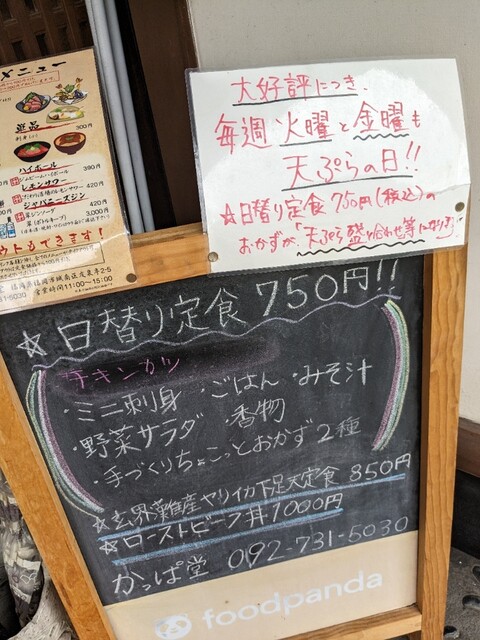 メニュー
単品
300円
ハイボール
390円
レモンサワー
420円
ジャパニーズジン
420円
3,000円
ウトもできます!
福岡県福岡市城南区友泉亭2-5
営業時間11:00~15:00
大好評につき、
毎週 火曜と金曜も
天ぷらの日!!
☆日替り定食 750円(税込)の
おかずが、「天ぷら盛り合わせ等になります」
☆日替り定食 750円!!
チキンカツ
・ミニ刺身 ・ごはん ・みそ汁
・野菜サラダ ・香物
・手づくりちょこっとおかず2種
☆玄界灘産ヤリイカ下足天定食 850円
☆ローストビーフ丼1000円
かっぱ堂 092-731-5030
foodpanda